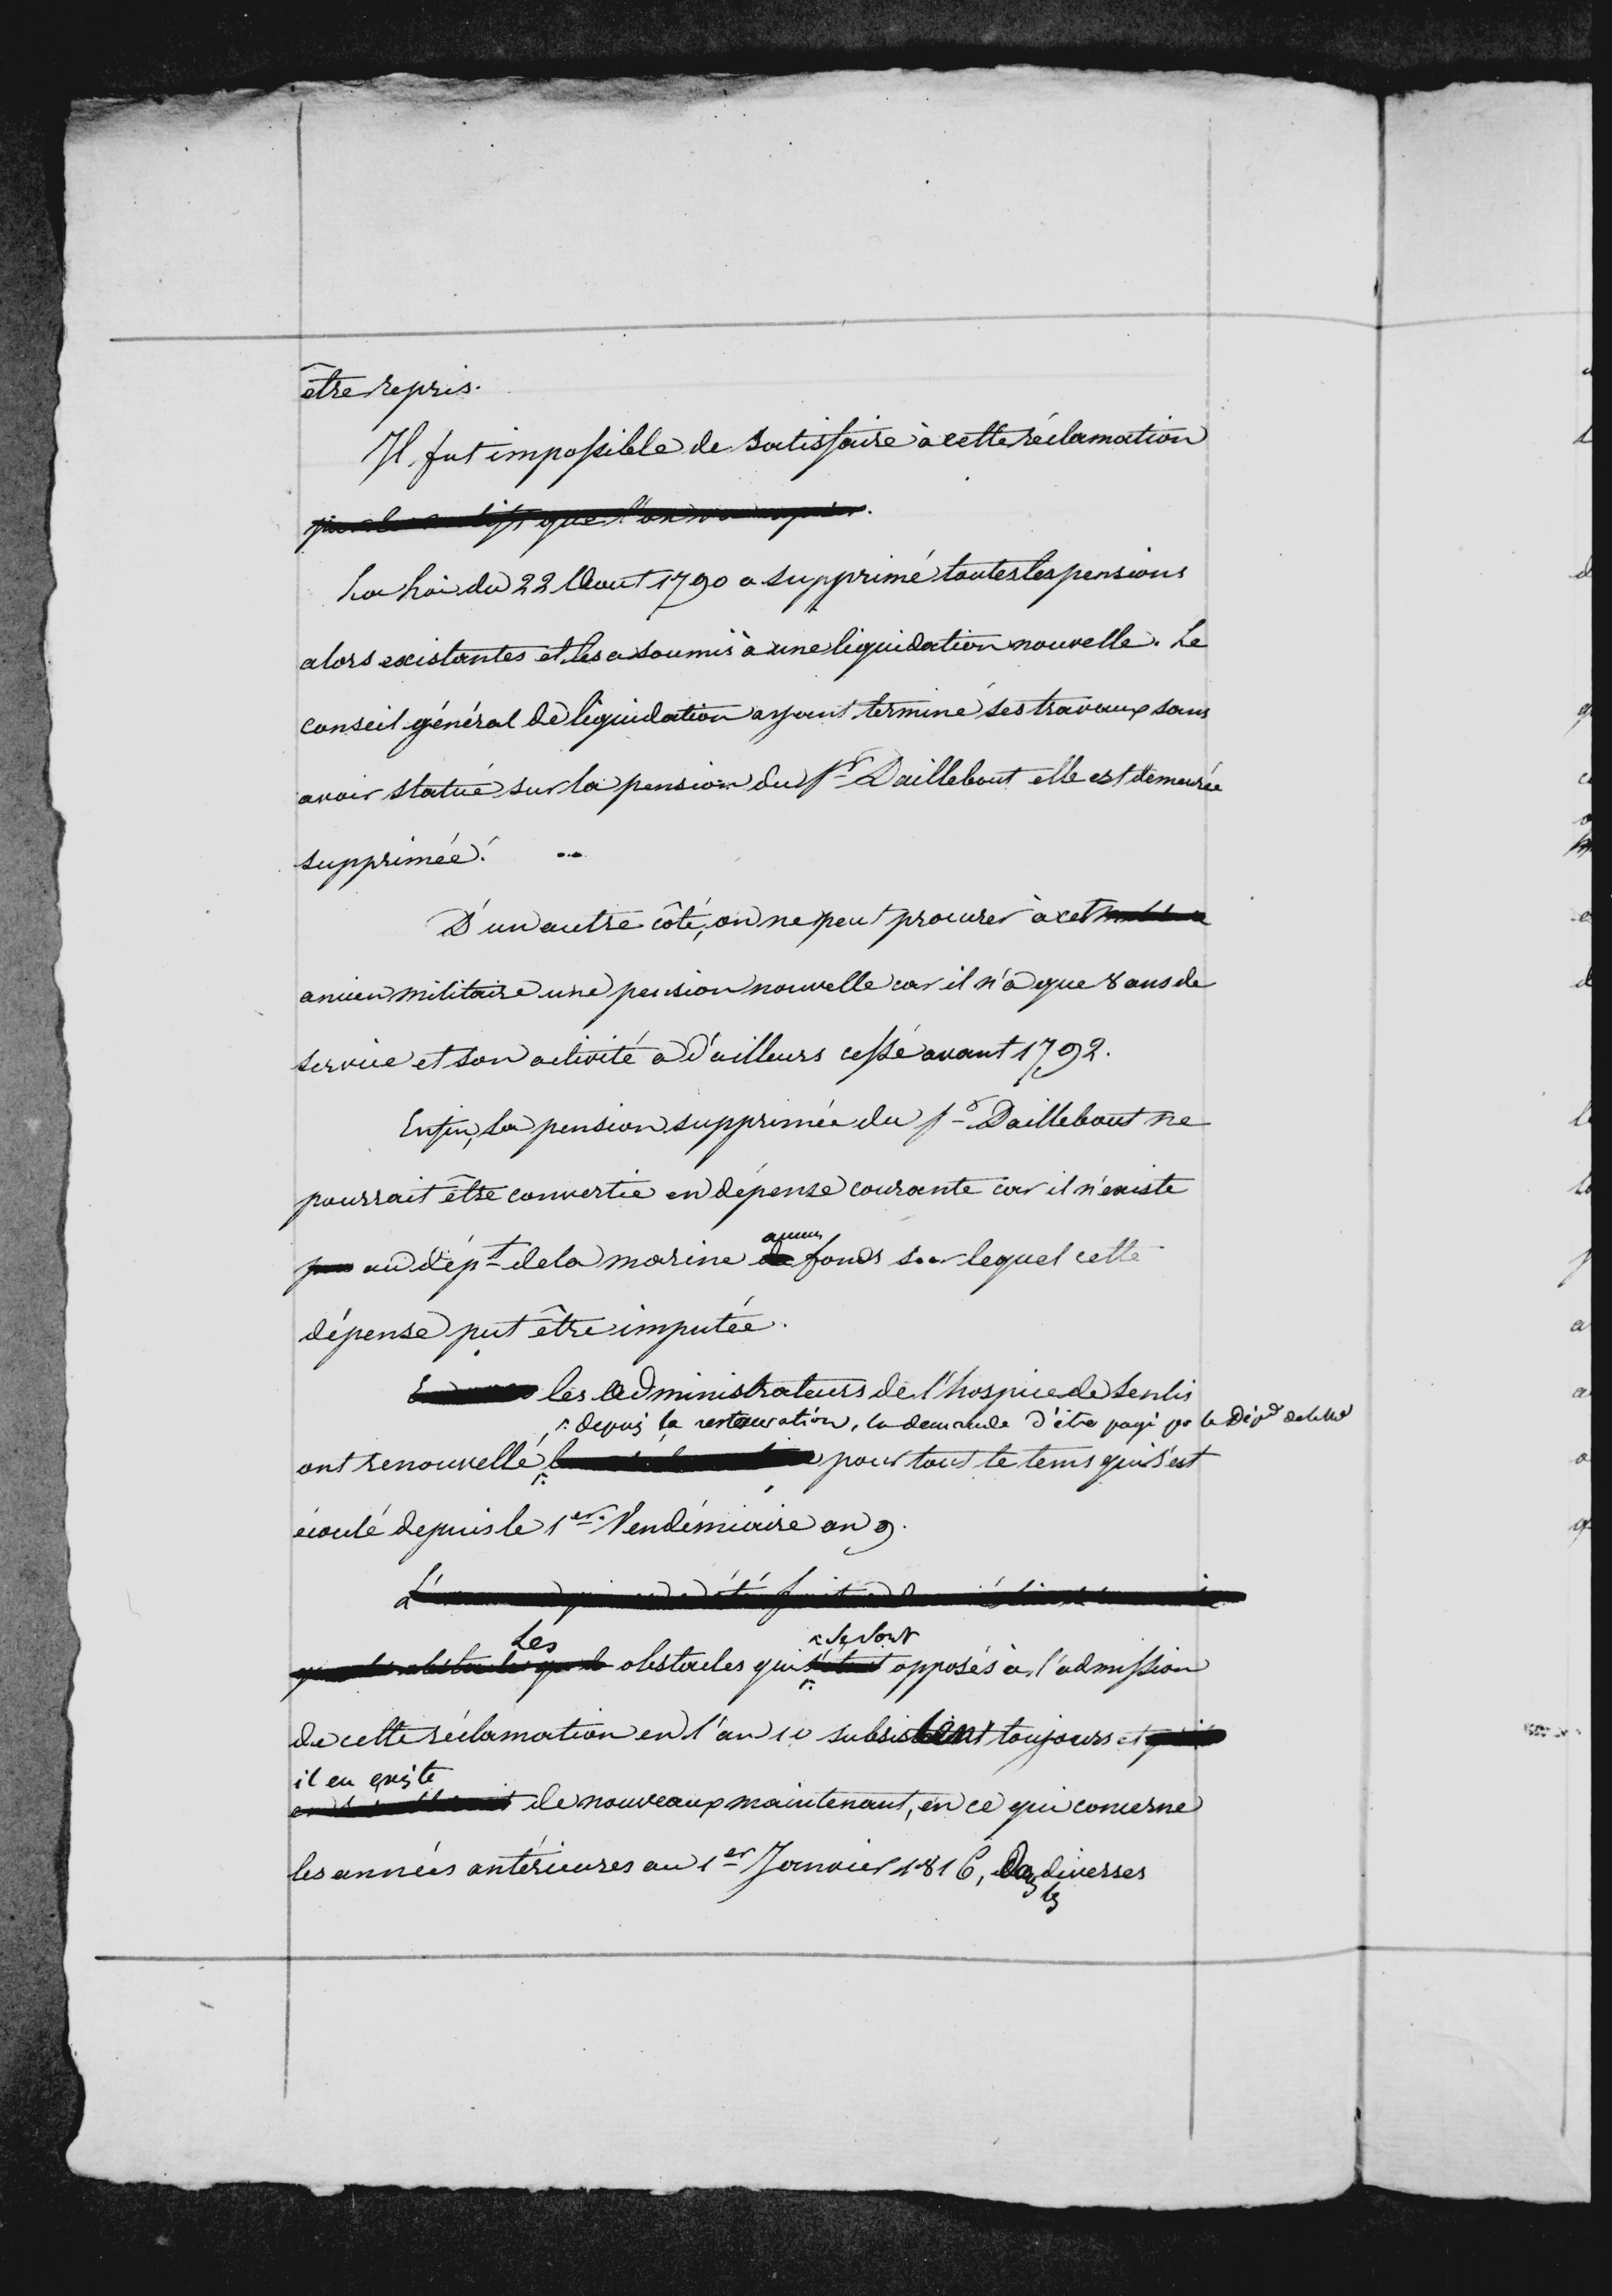 être repris.
Il fut impossible de satisfaire à cette réclamation
que l'on
La Loi du 22 Aout 1790 a supprimé toutes les pensions
alors existantes et les a soumis à une liquidation nouvelle. Le
conseil général de liquidation ayant terminé ses travaux sans
avoir statué sur la pension du Sr. Daillebout elle est demeurée
supprimée.
D'un autre côté, on ne peut procurer à cet
ancien militaire une pension nouvelle car il n'a que 8 ans de
service et son activité a d'ailleurs cessé avant 1792.
Enfin, la pension supprimée du Sr. Daillebout ne
pourrait être convertie en dépense courante car il n'existe
aucun
pas au dépt. de la marine de fonds sur lequel cette
dépense put être imputée.
les Administrateurs de l'hospice de Senlis
depuis la restauration, la demande d'être payé par le Dépt de la
ont renouvellé pour tout le tems qui s'est
écoulé depuis le 1er. Vendémiaire an 9.
L' a été fait
Les se sont
obstacles qui s'étaient opposés à l'admission
de cette réclamation en l'an 10 subsistent toujours et
il en existe
de nouveaux maintenant, en ce qui concerne
les années antérieures au 1er Janvier 1816, dans diverses
les